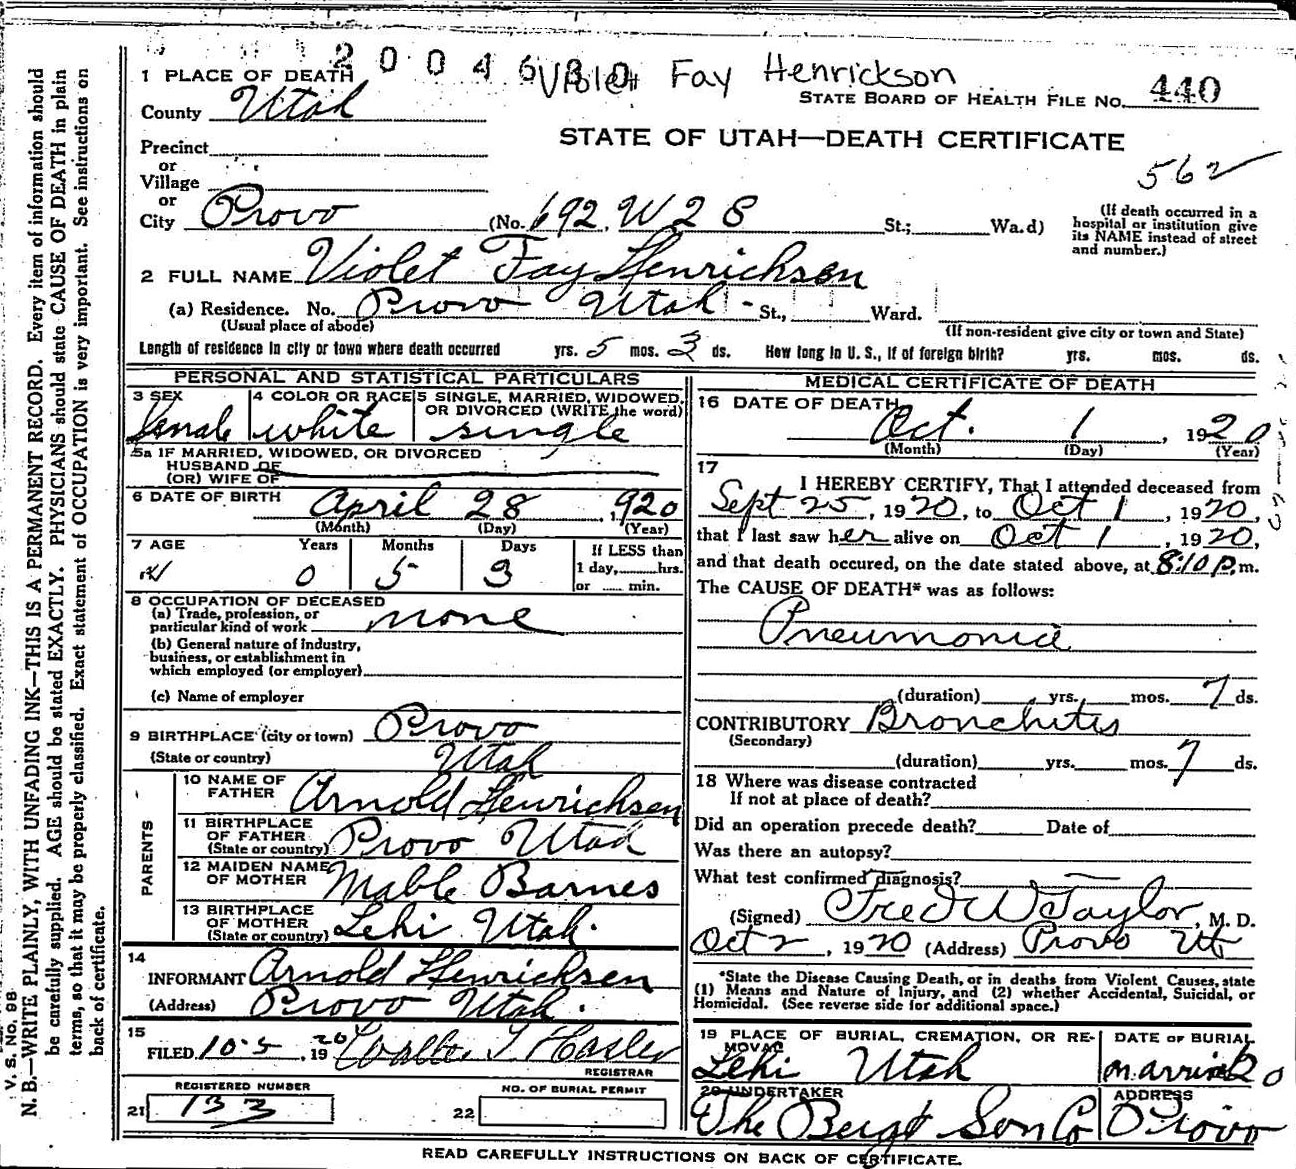 2004630 Violet Fay Henrickson
1 PLACE OF DEATH
STATE BOARD OF HEALTH FILE NO. 440
County Utah
STATE OF UTAH—DEATH CERTIFICATE
Precinct
562
or
Village
or
City Provo (No. 692. W 2 S St.; Wa.d)
(If death occurred in a hospital or institution give its NAME instead of street and number.)
2 FULL NAME Violet Fay Henrichsen
(a) Residence. No. Provo Utah - St., Ward.
(Usual place of abode) (If non-resident give city or town and State)
Length of residence in city or town where death occurred yrs. 5 mos. 3 ds. How long in U. S., if of foreign birth? yrs. mos. ds.
PERSONAL AND STATISTICAL PARTICULARS
3 SEX 4 COLOR OR RACE 5 SINGLE, MARRIED, WIDOWED, OR DIVORCED (WRITE the word)
female white single
5a IF MARRIED, WIDOWED, OR DIVORCED
HUSBAND OF
(OR) WIFE OF
6 DATE OF BIRTH April 28, 1920
(Month) (Day) (Year)
7 AGE Years Months Days If LESS than
1 day, hrs.
0 5 3 or min.
8 OCCUPATION OF DECEASED
(a) Trade, profession, or
particular kind of work none
(b) General nature of industry,
business, or establishment in
which employed (or employer)
(c) Name of employer
9 BIRTHPLACE (city or town) Provo
(State or country) Utah
PARENTS
10 NAME OF FATHER Arnold Henrichsen
11 BIRTHPLACE OF FATHER (State or country) Provo Utah
12 MAIDEN NAME OF MOTHER Mable Barnes
13 BIRTHPLACE OF MOTHER (State or country) Lehi Utah.
14
INFORMANT Arnold Henrichsen
(Address) Provo Utah.
15
FILED 10-5, 1920
REGISTRAR
REGISTERED NUMBER NO. OF BURIAL PERMIT
21 133 22
MEDICAL CERTIFICATE OF DEATH
16 DATE OF DEATH
Oct. 1, 1920
(Month) (Day) (Year)
17
I HEREBY CERTIFY, That I attended deceased from
Sept 25, 1920, to Oct 1, 1920,
that I last saw her alive on Oct 1, 1920,
and that death occured, on the date stated above, at 8:10 P.m.
The CAUSE OF DEATH* was as follows:
Pneumonia
(duration) yrs. mos. 7 ds.
CONTRIBUTORY Bronchitis
(Secondary)
(duration) yrs. mos. 7 ds.
18 Where was disease contracted
If not at place of death?
Did an operation precede death? Date of
Was there an autopsy?
What test confirmed diagnosis?
(Signed) Fred W Taylor, M. D.
Oct 2, 1920 (Address) Provo Ut
*State the Disease Causing Death, or in deaths from Violent Causes, state
(1) Means and Nature of Injury, and (2) whether Accidental, Suicidal, or
Homicidal. (See reverse side for additional space.)
19 PLACE OF BURIAL, CREMATION, OR REMOVAL DATE OF BURIAL
Lehi Utah
20 UNDERTAKER ADDRESS
The Berg & Son Co Provo
READ CAREFULLY INSTRUCTIONS ON BACK OF CERTIFICATE.
V. S. No. 98
N. B.—WRITE PLAINLY, WITH UNFADING INK—THIS IS A PERMANENT RECORD. Every item of information should
be carefully supplied. AGE should be stated EXACTLY. PHYSICIANS should state CAUSE OF DEATH in plain
terms, so that it may be properly classified. Exact statement of OCCUPATION is very important. See instructions on
back of certificate.